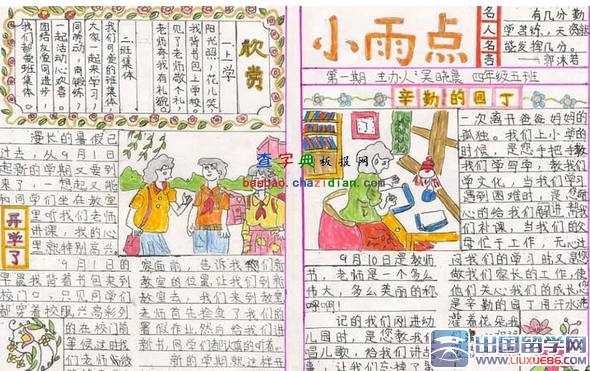 欣赏
一 上学
阳光照,花儿笑,
我背书包上学校。
见了老师敬个礼
老师夸我有礼貌。
二 班集体
我们可爱的班集体,
大家一起来学习,
同劳动,同锻炼,
一起活动心欢喜。
团结友爱同进步,
我们都爱班集体。
开学了
漫长的暑假已
过去,从9月1日
起新的学期又要到
来了,一想起又能
和同学们坐在教室
里听我们老师
讲课,我的心
里就特别高兴
9月1日的
早晨我背着书包来到
校门口,只见同学们
都穿着校服兴高彩列
的在校门前
等候过时我
们老师
家面前,告诉我们新
教室的位置,让我们到新
教室去,我们来到教室
老师首先检查了我们的
暑假作业,然后给我们讲
新书,同学们都认真的听着。
新的学期就这样开
查字典板报网
banbao.chazidian.com
小雨点
名人名言
有几分勤
学苦练,天
能发挥几分。
——郭沫若
第一期 主办人:吴晓晨 四年级五班
辛勤的园丁
一次离开爸爸妈妈的
孤独。我们上小学的
时候,是您手把手教
我们学写字,教我们
学文化,当我们学习
遇到困难时,是您耐
心的给我们
们补课,当我们的父
母忙于工作,无心过
问我们的学习时又是您
做我们家长的工作,使
他们关心我们的成长
是辛勤的园丁用汗水浇
灌着花朵
9月10日是教师
节,老师是一个多么
伟大,多么美丽的称
呼啊!
记的我们刚进幼
儿园时,是您教我们
唱儿歌,给我们讲故
事,让我们忘掉了第
出国留学网
www.liuxue86.com